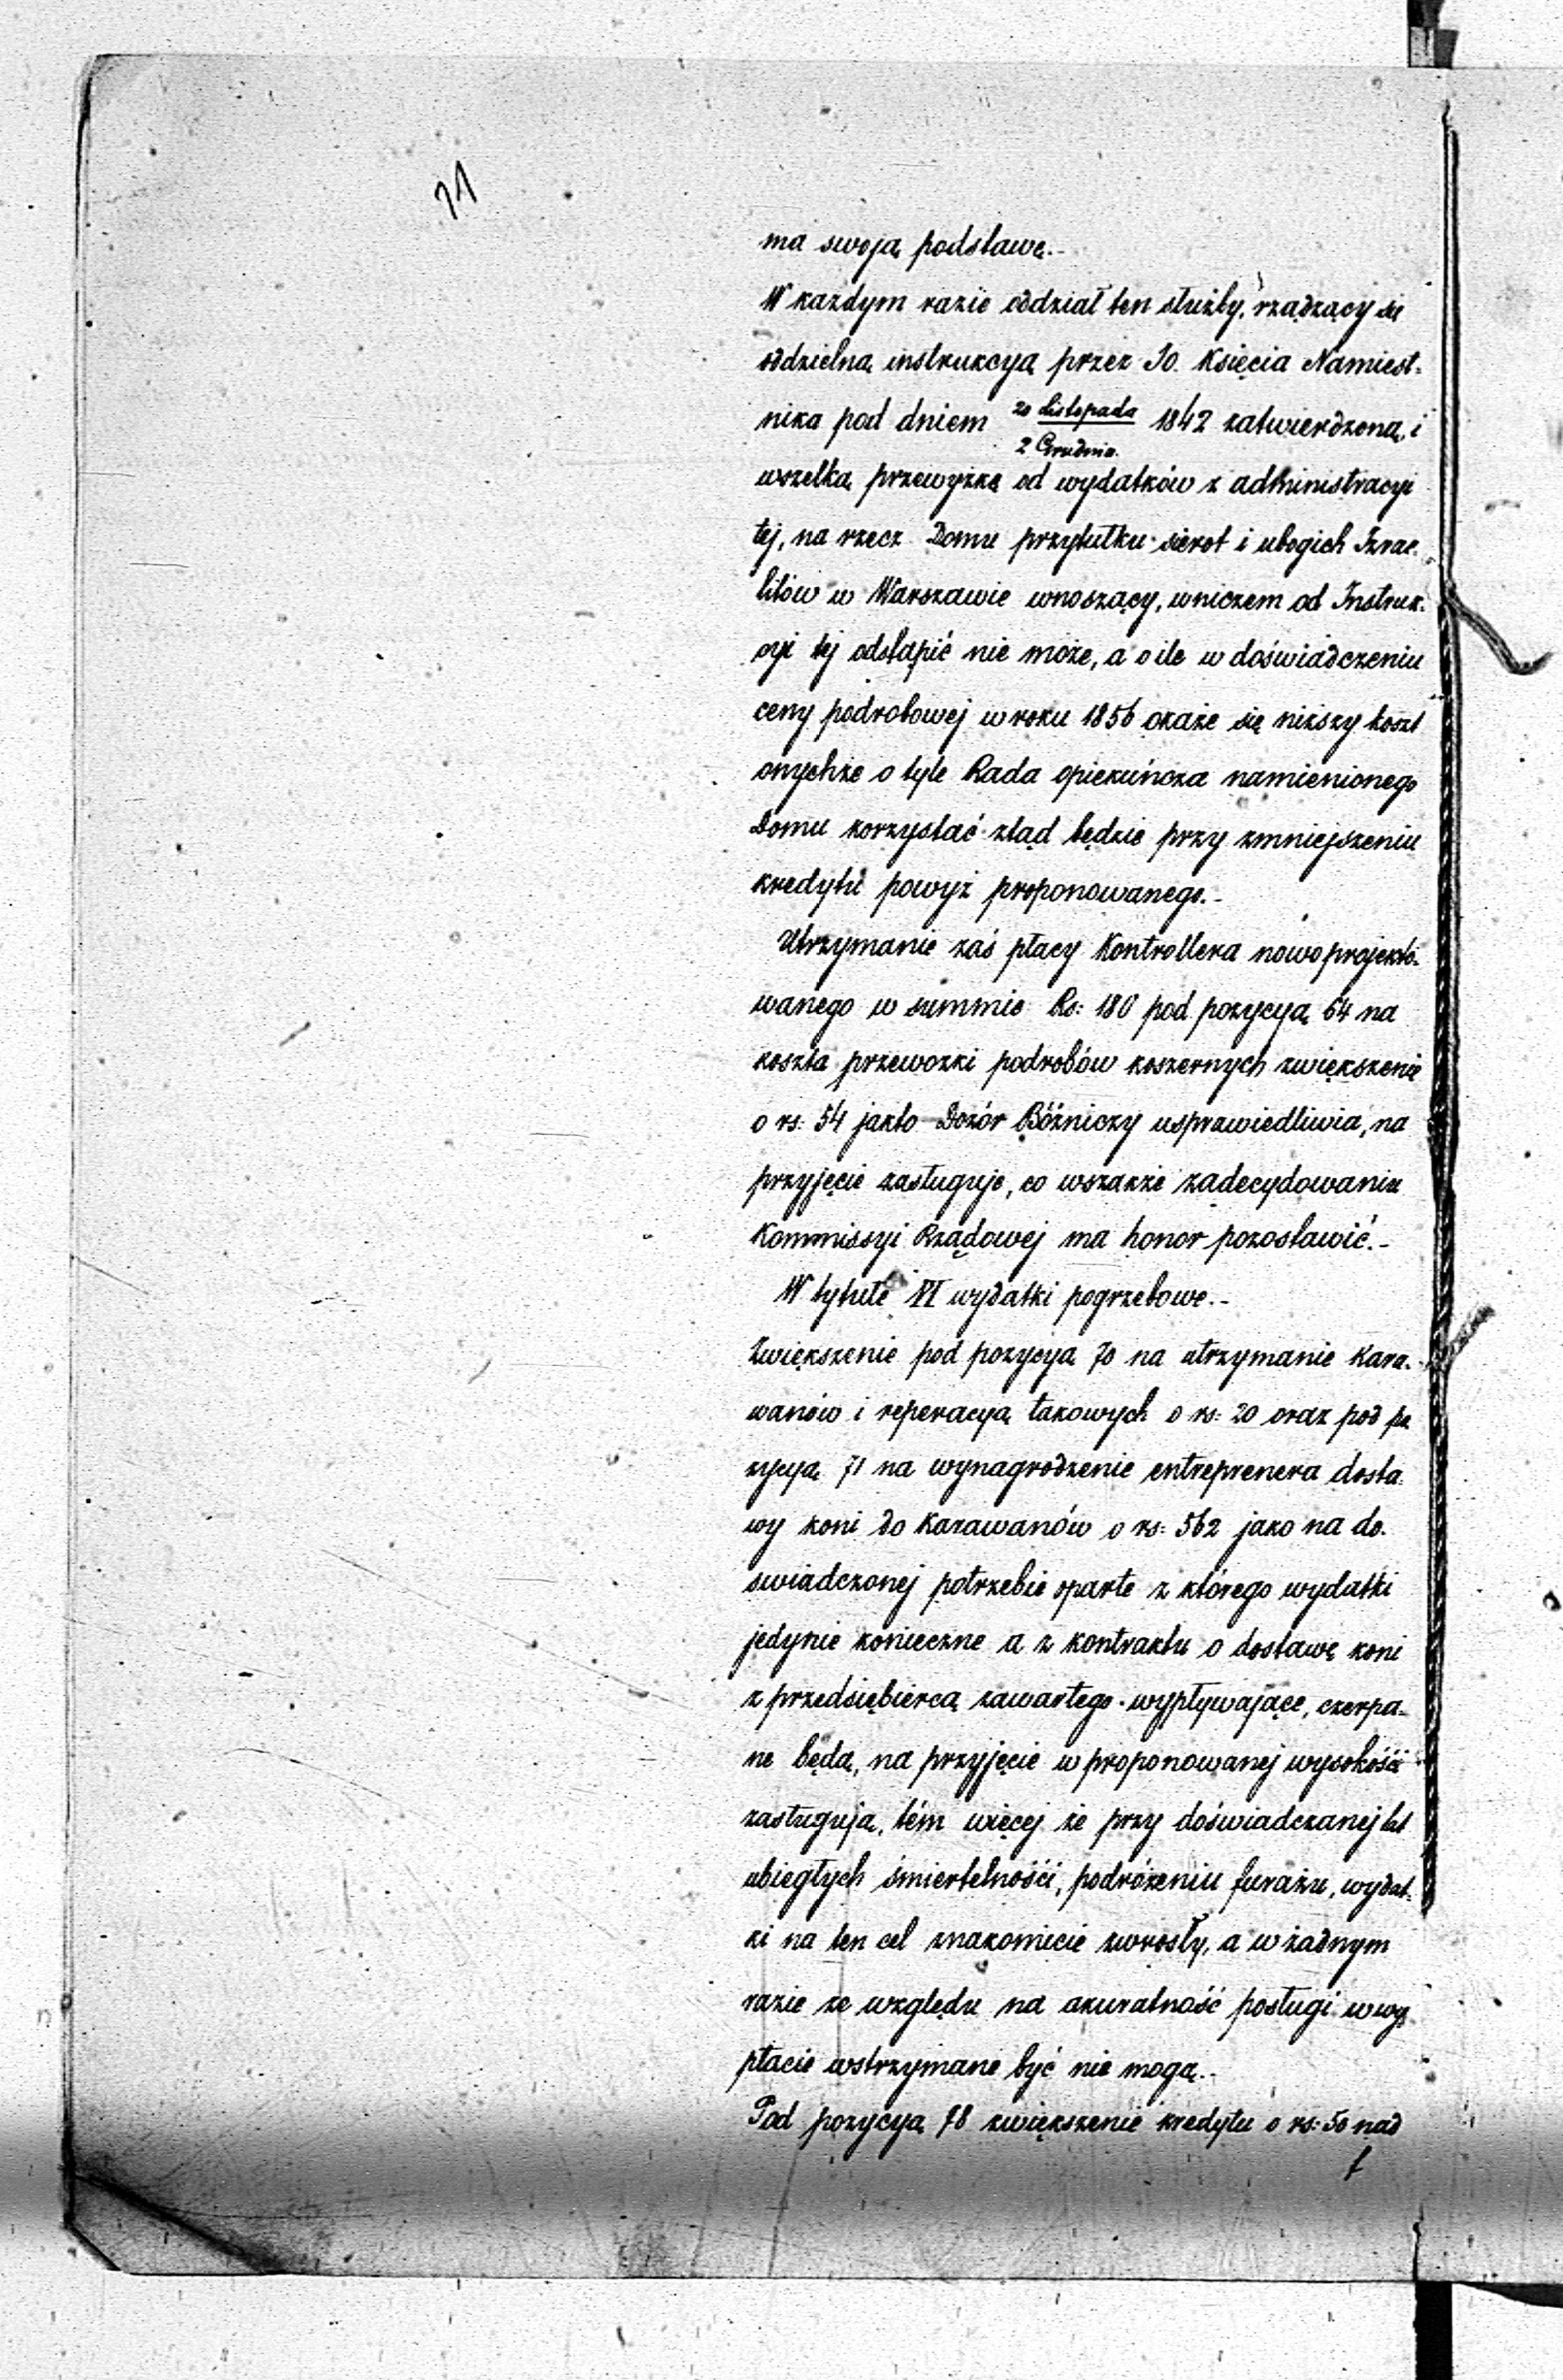 21
ma swoją podstawę.-
W każdym razie oddział ten służby, rządzący się
oddzielną instrukcyą przez Jo. Księcia Namiest-
nika pod dniem 20 Listopada / 2 Grudnia 1842 zatwierdzoną, i
wszelką przewyżkę od wydatków z administracyi
tej, na rzecz Domu przytułku sierot i ubogich Izrae-
litów w Warszawie wnoszący, wniczem od Instruk-
cyi tej odstąpić nie może, a o ile w doświadczeniu
ceny podrobowej w roku 1856 okaże się niższy koszt
onychże o tyle Rada opiekuńcza namienionego
Domu korzystać ztąd będzie przy zmniejszeniu
kredytu powyż proponowanego.-
Utrzymanie zaś płacy Kontrollera nowo projekto-
wanego w summie Rs: 180 pod pozycyą 64 na
koszta przewozki podrobów koszernych zwiększenie
o rs: 54 jakto Dozór Bóżniczy usprawiedliwia, na
przyjęcie zasługuje, co wszakże zadecydowaniu
Kommissyi Rządowej ma honor pozostawić.-
W tytule VI wydatki pogrzebowe.-
Zwiększenie pod pozycyą 70 na utrzymanie Kara-
wanów i reperacyą takowych o rs: 20 oraz pod po
zycyą 71 na wynagrodzenie entreprenera dosta-
wy koni do Karawanów o rs: 562 jako na do-
swiadczonej potrzebie oparte z którego wydatki
jedynie konieczne a z kontraktu o dostawę koni
z przedsiębiercą zawartego wypływające, czerpa-
ne będą, na przyjęcie w proponowanej wysokości
zasługują, tém więcej że przy doświadczanej lat
ubiegłych śmiertelności, podrożeniu furażu, wydat-
ki na ten cel znakomicie zwrosły, a w żadnym
razie ze względu na akuratność posługi w wy
płacie wstrzymane być nie mogą.-
Pod pozycyą 78 zwiększenie kredytu o rs: 50 nad